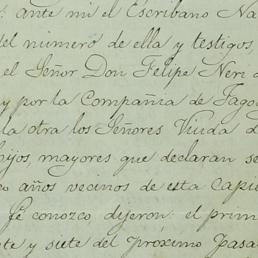 : ante mi el Escribano Na
del numero de ella y testigos,
el Señor Don Felipe Neri d
y por la Compañia de Jago
la otra los Señores Viuda d
hijos, mayores que declaran se
co años vecinos de esta Capi
fé conozco dijeron: el prim
te y siete del próximo pasa